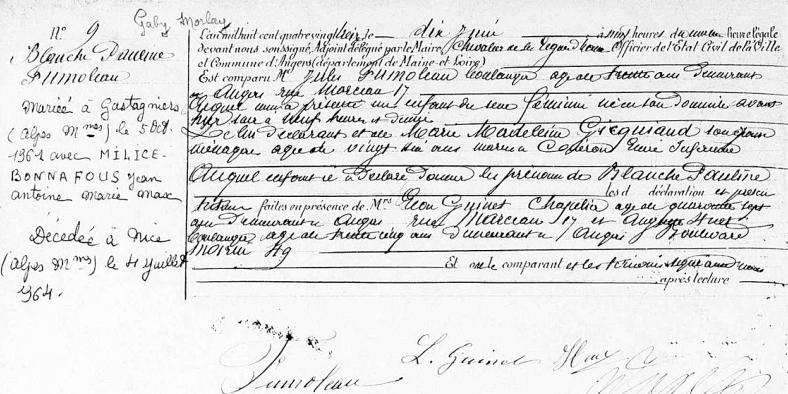 Gaby Morlay
N° 9
Blanche Pauline
Fumoleau
Mariée à Gastagniers
(Alpes Mmes) le 5 Oct.
1961 avec MILICE-
BONNAFOUS Jean
Antoine Marie Max
Décédée à Nice
(Alpes Mmes) le 4 Juillet
1964.
L'an mil huit cent quatre vingt treize le dix Juin à heures du heure légale
devant nous soussigné, Adjoint délégué par le Maire, Chevalier de la Légion d'honneur Officier de l'Etat Civil de la Ville
et Commune d'Angers (département de Maine-et-Loire)
Est comparu Mr Jules Fumoleau boulanger âgé de trente ans demeurant
à Angers rue Marceau 17
Lequel nous a présenté un enfant du sexe féminin né en son domicile avant
hier soir à neuf heures et demie
de lui déclarant et de Marie Madeleine Gicquiaud son épouse
ménagère âgée de vingt six ans mariés à Inférieure
Auquel enfant il a déclaré donner les prénoms de Blanche Pauline
les d. déclaration et présen
tation faites en présence de Mrs Léon Guinet Chapelier âgé de quarante sept
ans demeurant à Angers rue Marceau 17 et Auguste
boulanger âgé de trente cinq ans demeurant à Angers Boulevard
49
Et ont le comparant et les témoins signé avec nous
après lecture
Fumoleau
L. Guinet